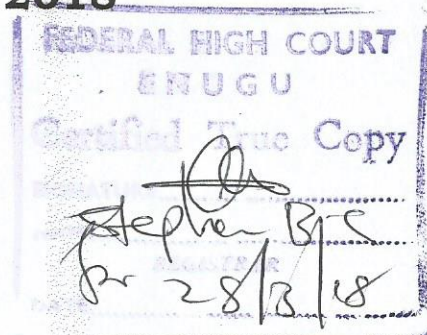 2018
FEDERAL HIGH COURT
ENUGU
Certified True Copy
SIGNATURE
Stephen B-S
REGISTRAR
28/3/18